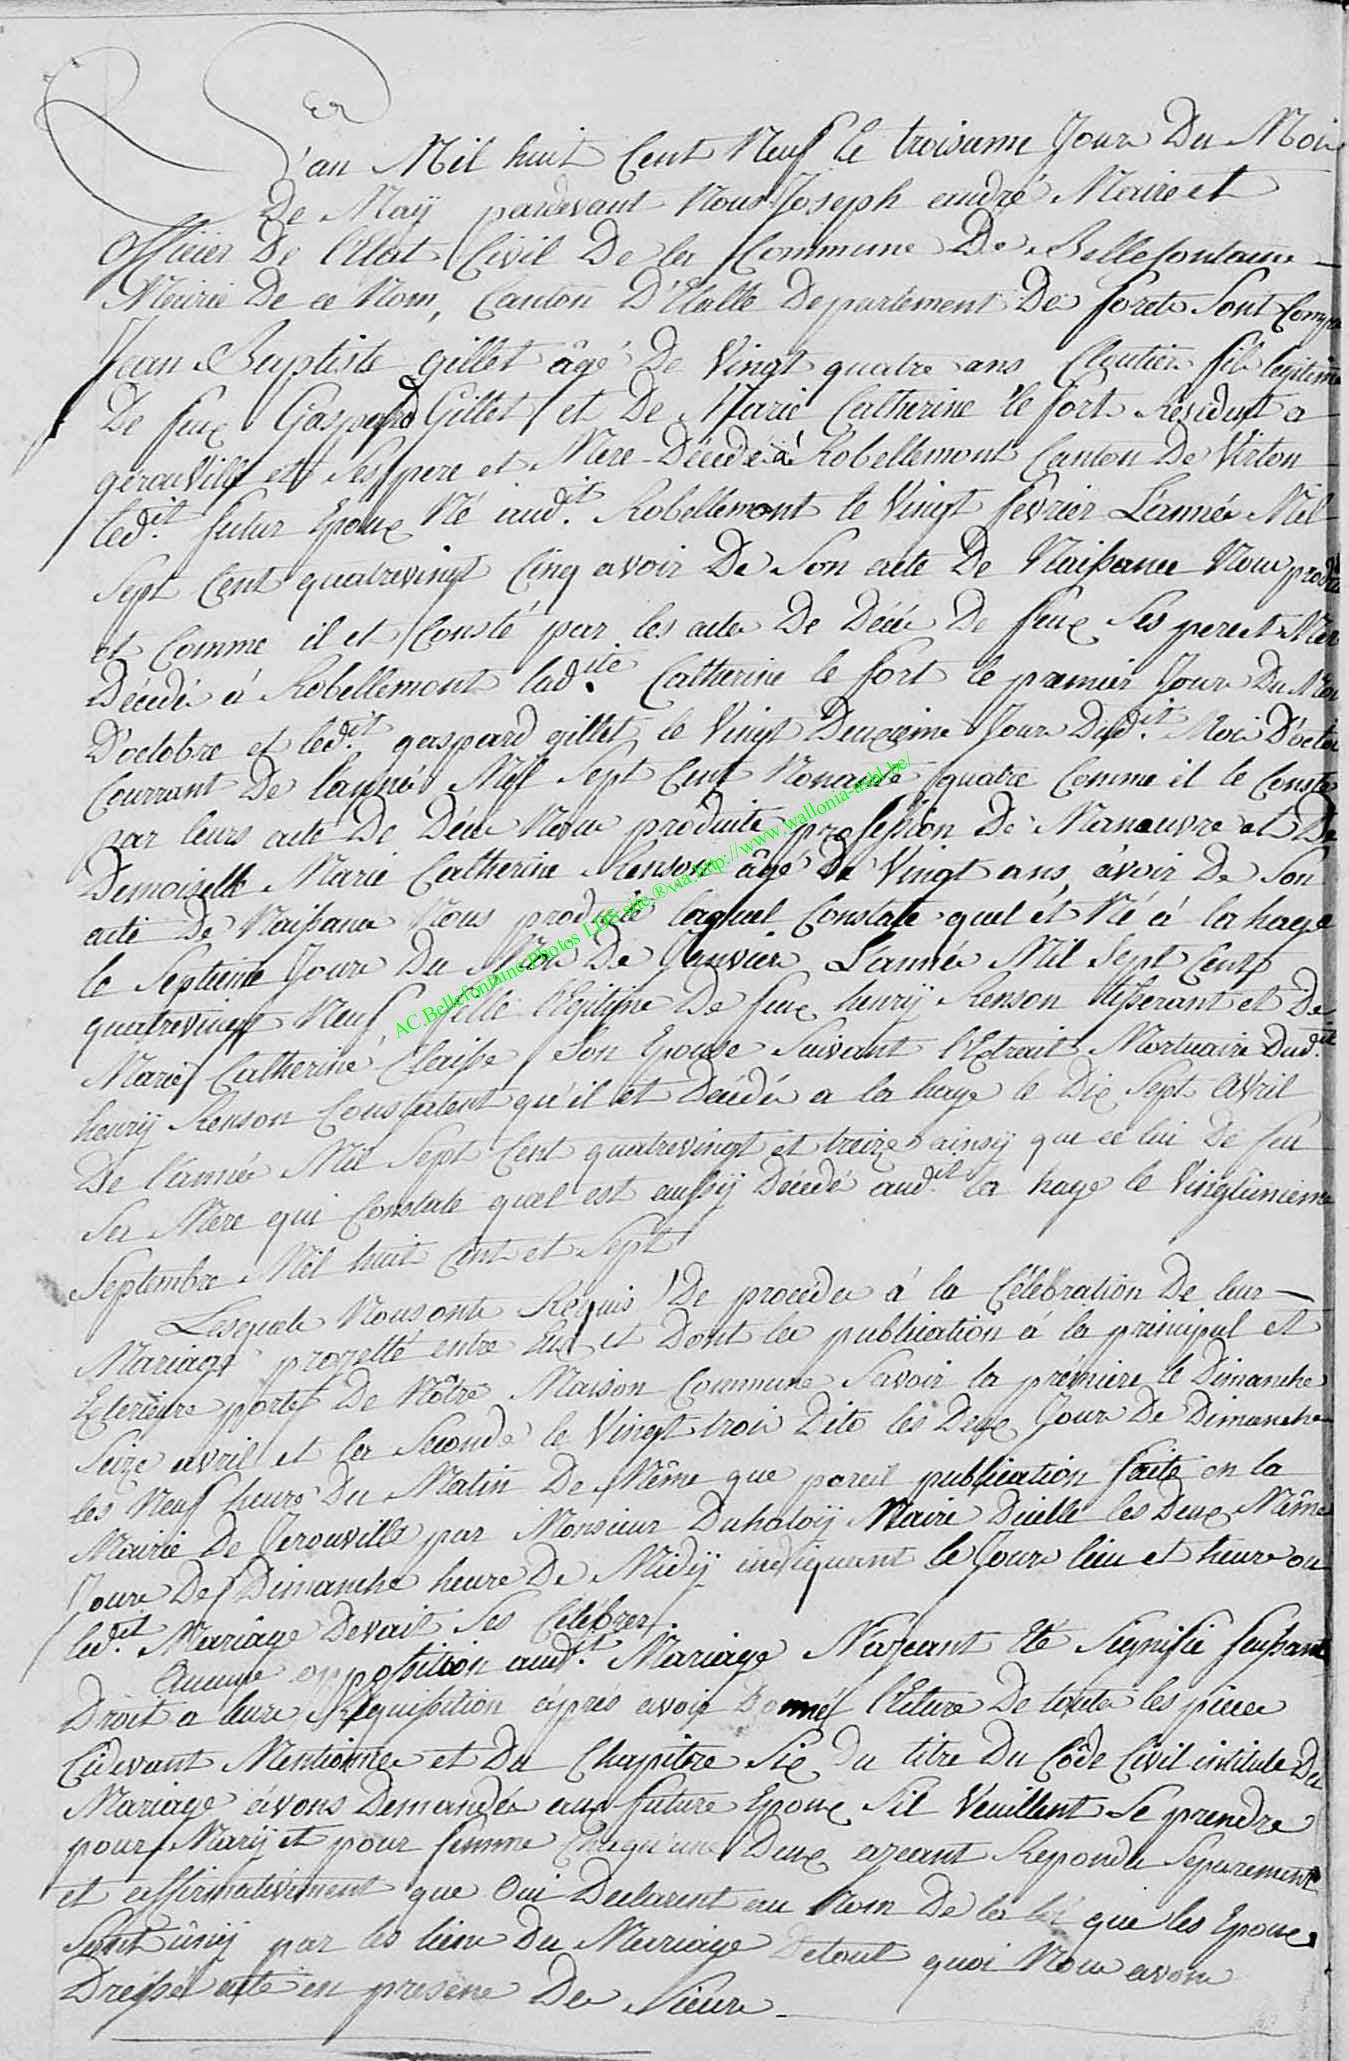 L'an Mil huit Cent Neuf le troisieme Jour Du Moi
De Maÿ pardevant Nous Joseph andré Maire et
officier De l'Etat Civil De la Commune De Bellefontaine
Mairie De ce Nom, Canton D'Etalle Departement De forets Sont Compa
Jean Baptiste gillet âgé De Vingt quatre ans Cloutier fils legitime
De feux Gaspard Gillet et De Marie Catherine le fort Resident a
gerouville et Ses pere et Mere Décédé à Robellemont Canton De Virton
led.it futur Epoux Né aud.it Robellemont le Vingt fevrier L'année Mil
Sept Cent quatrevingt Cinq avoir De Son acte De Naissance Nous produ
et Comme il et Consté par les acte De Décé De feux Ses pere et Mer
Décédé à Robellemont lad.ite Catherine le fort le premier Jour Du Moi
D'octobre et led.it gaspard gillet le Vingt Deuxieme Jour Dud.it Moi D'octo
Courrant De l'année Mil Sept Cent Nonante quatre Comme il le Conste
par leurs acte De Décé Nous produite profession De Manœuvre et De
Demoiselle Marie Catherine Renson âgé De Vingt ans, avoir De Son
acte De Naissance Nous produite laquel Constate quel ét Né à la hage
le Septieme Jour Du Moi De Janvier L'année Mil Sept Cent
quatrevingt Neuf fille legitime De feux henrÿ Renson tisserant et De
Marie Catherine Claisse Son Epouse Suivant l'Extrait Mortuaire Dud.it
henrÿ Renson Constatent qu'il et Décédé a la hage le Dix Sept Avril
De l'année Mil Sept Cent quatrevingt et treize ainsÿ que ce lui De feu
Sa Mere qui Constate quel est aussÿ Décédé aud.it la hage le Vingtunieme
Septembre Mil huit Cent et Sept
Lesquels Nous onts Requis De proceder à la Célébration De leur
Mariage projetté entre Eux et Dont les publication à la principal et
Exterieure porte De Nôtre Maison Commune Savoir la premiere le Dimanche
Seize avril et la Seconde le Vingt trois Dito les Deux Jour De Dimanche
les Neuf heure Du Matin De Même que pareil publication faite en la
Mairie De Jerouville par Monsieur Duhatoÿ Maire Dicelle les Deux Même
Jour De Dimanche heure De Midÿ indiquant le Jour lieu et heure ou
led.it Mariage Devait Ses Célébrer.
Aucune opposition aud.it Mariage N'aÿeant Eté Signifié faisant
Droit a leur Requisition áprés avoir Donné lecture De toute les piece
Cidevant Mentionné et Du Chapitre Six du titre Du Côde Civil intitulé Du
Mariage ávons Demandés aux future Epoux Sil Veuillent Se prendre
pour Marÿ et pour femme Chaqu'une Deux aÿeant Repondu Separement
et affirmativement que Oui Declarent au Nom De la loi que les Epoux
Sont ûnÿ par les lien Du Mariage De tout quoi Nous avons
Dressé acte en presene De Sieur
AC.Bellefontaine.Photos LDS site.® via http://www.wallonia-asbl.be/